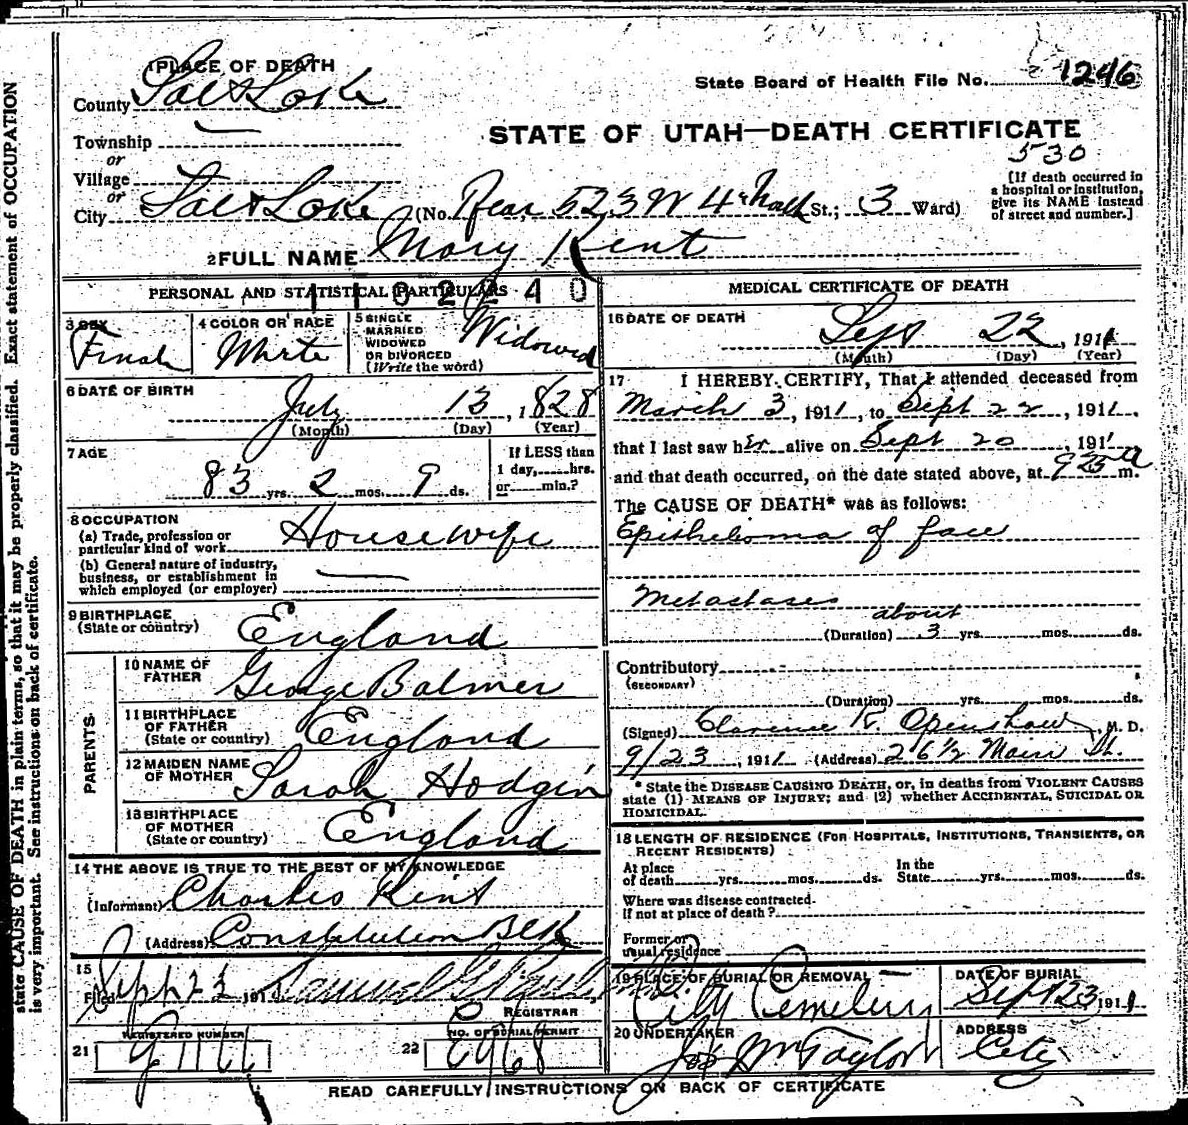 state CAUSE OF DEATH in plain terms, so that it may be properly classified. Exact statement of OCCUPATION
is very important. See instructions on back of certificate.
1 PLACE OF DEATH
County Salt Lake
Township
or
Village
or
City Salt Lake (No. Rear 523 W 4th North St.; 3 Ward)
State Board of Health File No. 1246
STATE OF UTAH—DEATH CERTIFICATE
530
[If death occurred in
a hospital or institution,
give its NAME instead
of street and number.]
2 FULL NAME Mary Kent
PERSONAL AND STATISTICAL PARTICULARS
1102240
3 SEX
Female
4 COLOR OR RACE
White
5 SINGLE
MARRIED
WIDOWED
OR DIVORCED
(Write the word)
Widowed
6 DATE OF BIRTH
July 13, 1828
(Month) (Day) (Year)
7 AGE
83 yrs. 2 mos. 9 ds.
If LESS than
1 day, hrs.
or min.?
8 OCCUPATION
(a) Trade, profession or
particular kind of work Housewife
(b) General nature of industry,
business, or establishment in
which employed (or employer)
9 BIRTHPLACE
(State or country) England
PARENTS
10 NAME OF
FATHER George Balmer
11 BIRTHPLACE
OF FATHER
(State or country) England
12 MAIDEN NAME
OF MOTHER Sarah Hodgin
13 BIRTHPLACE
OF MOTHER
(State or country) England
14 THE ABOVE IS TRUE TO THE BEST OF MY KNOWLEDGE
(Informant) Charles Kent
(Address) Constitution Blk
15
Filed Sept 23 191 Samuel G.
REGISTRAR
REGISTERED NUMBER
21
NO. OF BURIAL PERMIT
22
MEDICAL CERTIFICATE OF DEATH
16 DATE OF DEATH
Sept 22, 1911
(Month) (Day) (Year)
17 I HEREBY CERTIFY, That I attended deceased from
March 3, 1911, to Sept 22, 1911,
that I last saw her alive on Sept 20, 1911
and that death occurred, on the date stated above, at 9 25 a m.
The CAUSE OF DEATH* was as follows:
Epithelioma of face
Metastases
about
(Duration) 3 yrs. mos. ds.
Contributory
(SECONDARY)
(Duration) yrs. mos. ds.
(Signed) Clarence R. Openshaw, M. D.
9/23, 1911 (Address) 26½ Main St.
* State the DISEASE CAUSING DEATH, or, in deaths from VIOLENT CAUSES
state (1) MEANS OF INJURY; and (2) whether ACCIDENTAL, SUICIDAL OR
HOMICIDAL.
18 LENGTH OF RESIDENCE (FOR HOSPITALS, INSTITUTIONS, TRANSIENTS, OR
RECENT RESIDENTS)
At place
of death yrs. mos. ds.
In the
State yrs. mos. ds.
Where was disease contracted
if not at place of death?
Former or
usual residence
19 PLACE OF BURIAL OR REMOVAL
City Cemetery
DATE OF BURIAL
Sept 23 1911
20 UNDERTAKER
Jos Wm Taylor
ADDRESS
City
READ CAREFULLY INSTRUCTIONS ON BACK OF CERTIFICATE